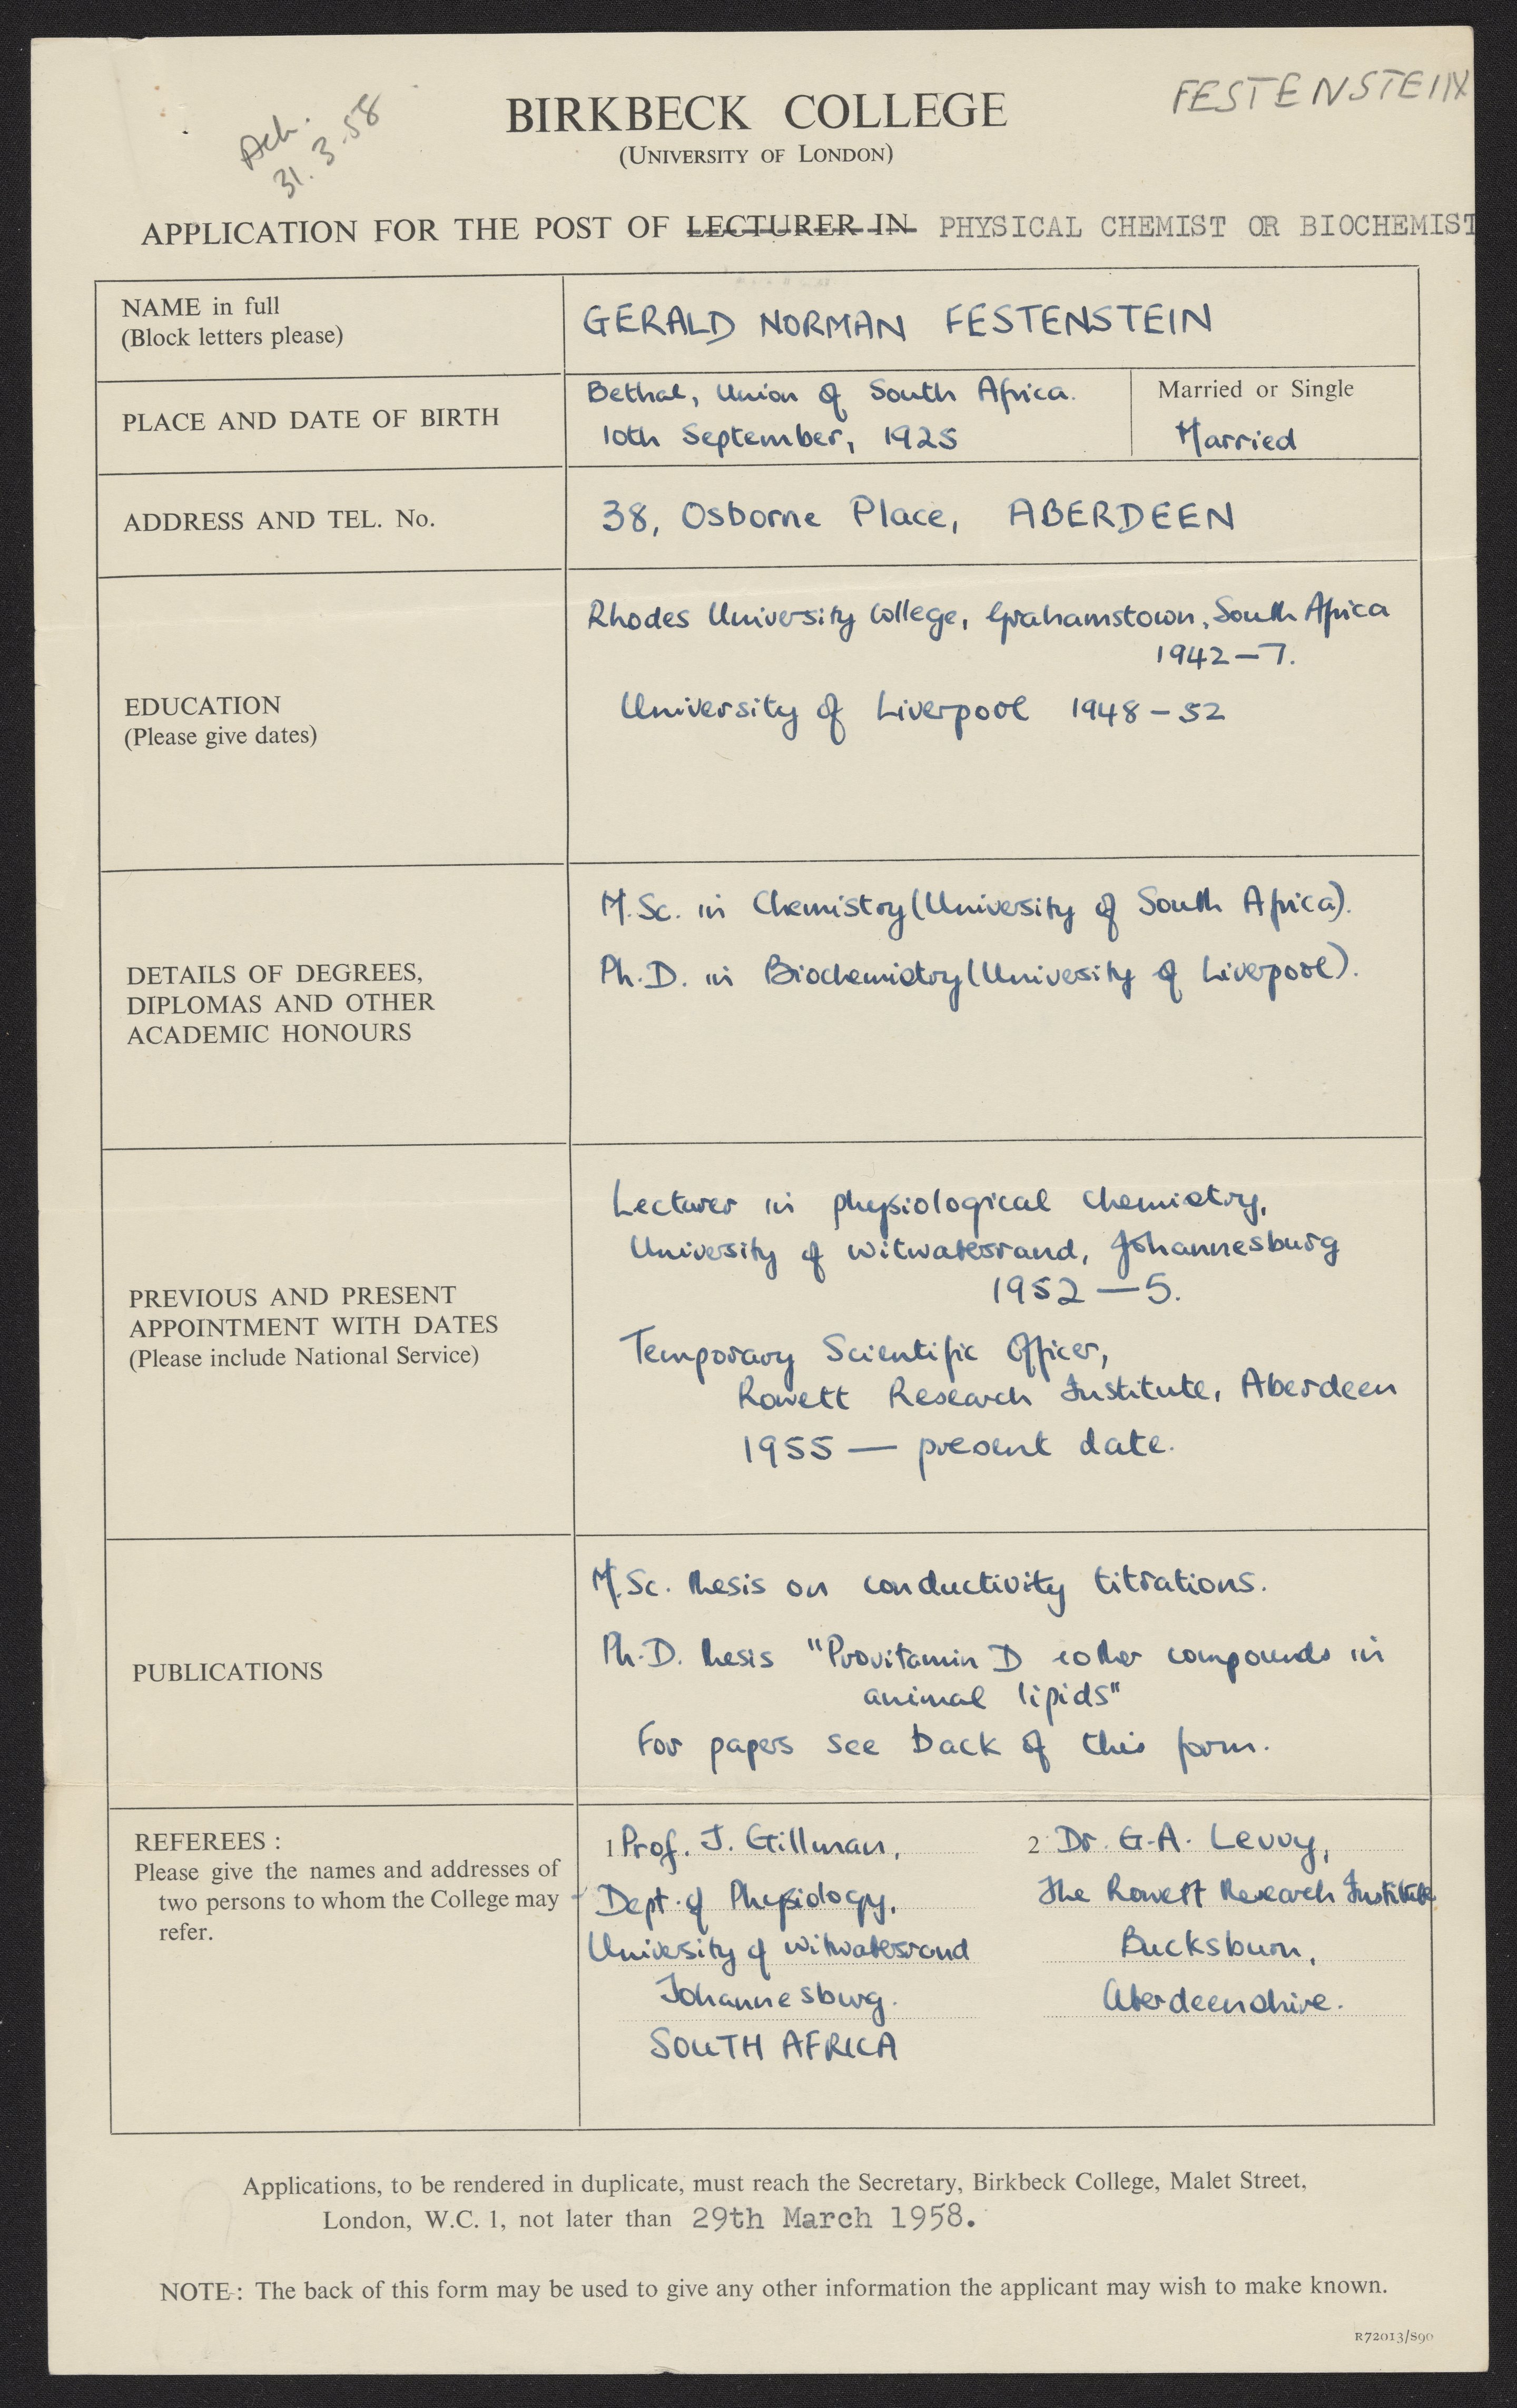 FESTENSTEIN
Ack.
31.3.58
BIRKBECK COLLEGE
(UNIVERSITY OF LONDON)
APPLICATION FOR THE POST OF LECTURER IN PHYSICAL CHEMIST OR BIOCHEMIST
NAME in full
(Block letters please)
GERALD NORMAN FESTENSTEIN
PLACE AND DATE OF BIRTH
Bethal, Union of South Africa.
10th September, 1925
Married or Single
Married
ADDRESS AND TEL. No.
38, Osborne Place, ABERDEEN
EDUCATION
(Please give dates)
Rhodes University College, Grahamstown, South Africa
1942–7.
University of Liverpool 1948–52
DETAILS OF DEGREES,
DIPLOMAS AND OTHER
ACADEMIC HONOURS
M.Sc. in Chemistry (University of South Africa).
Ph.D. in Biochemistry (University of Liverpool).
PREVIOUS AND PRESENT
APPOINTMENT WITH DATES
(Please include National Service)
Lecturer in physiological chemistry,
University of Witwatersrand, Johannesburg
1952–5.
Temporary Scientific Officer,
Rowett Research Institute, Aberdeen
1955 — present date.
PUBLICATIONS
M.Sc. thesis on conductivity titrations.
Ph.D. thesis "Provitamin D & other compounds in
animal lipids"
For papers see back of this form.
REFEREES :
Please give the names and addresses of
two persons to whom the College may
refer.
1 Prof. J. Gillman,
Dept. of Physiology,
University of Witwatersrand
Johannesburg.
SOUTH AFRICA
2 Dr. G.A. Levvy,
The Rowett Research Institute
Bucksburn,
Aberdeenshire.
Applications, to be rendered in duplicate, must reach the Secretary, Birkbeck College, Malet Street,
London, W.C. 1, not later than 29th March 1958.
NOTE : The back of this form may be used to give any other information the applicant may wish to make known.
R72013/S90